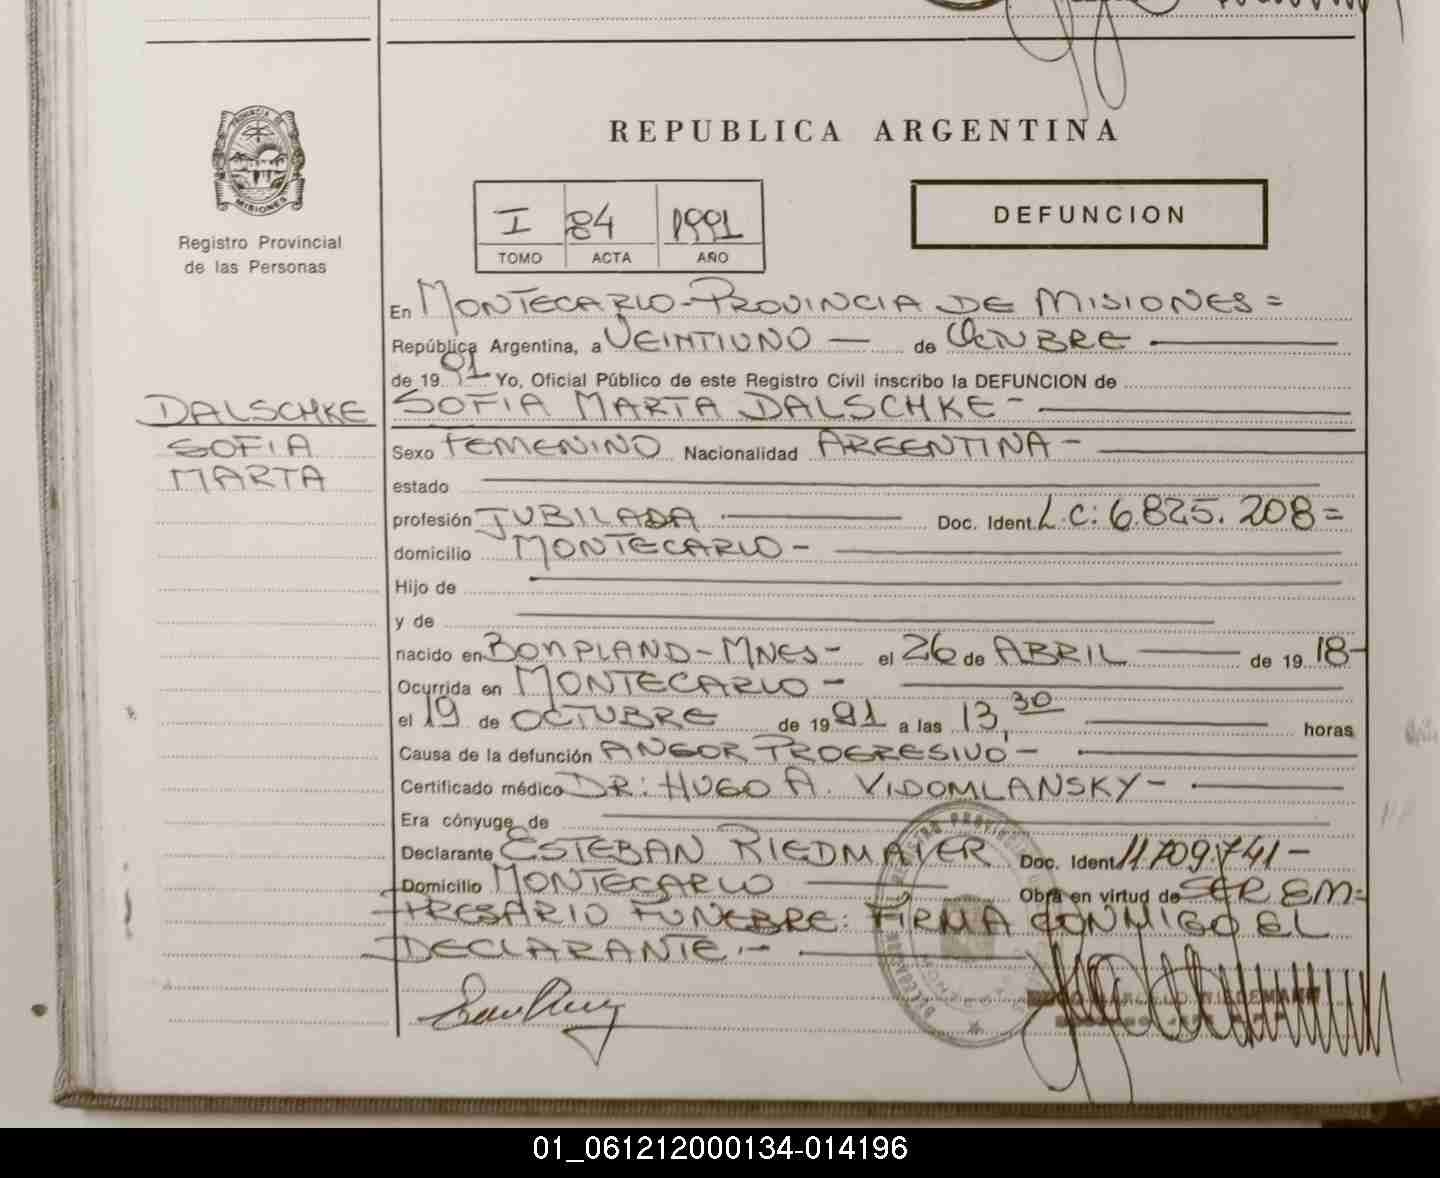 REPUBLICA ARGENTINA
PROVINCIA DE
MISIONES
Registro Provincial
de las Personas
I 84 1991
TOMO ACTA AÑO
DEFUNCION
En MONTECARLO-PROVINCIA DE MISIONES=
República Argentina, a VEINTIUNO — de OCTUBRE —
de 19 91 Yo, Oficial Público de este Registro Civil inscribo la DEFUNCION de
SOFIA MARTA DALSCHKE-
DALSCHKE
SOFIA
MARTA
Sexo FEMENINO Nacionalidad ARGENTINA-
estado
profesión JUBILADA Doc. Ident. L.C: 6.825.208=
domicilio MONTECARLO-
Hijo de
y de
nacido en BONPLAND-MNES- el 26 de ABRIL — de 19 18-
Ocurrida en MONTECARLO-
el 19 de OCTUBRE de 19 91 a las 13,30 horas
Causa de la defunción ANGOR PROGRESIVO-
Certificado médico DR: HUGO A. VIDOMLANSKY-
Era cónyuge de
Declarante ESTEBAN RIEDMAYER Doc. Ident 11.709.741-
Domicilio MONTECARLO Obra en virtud de SER EM=
PRESARIO FUNEBRE: FIRMA CONMIGO EL
DECLARANTE.-
01_061212000134-014196